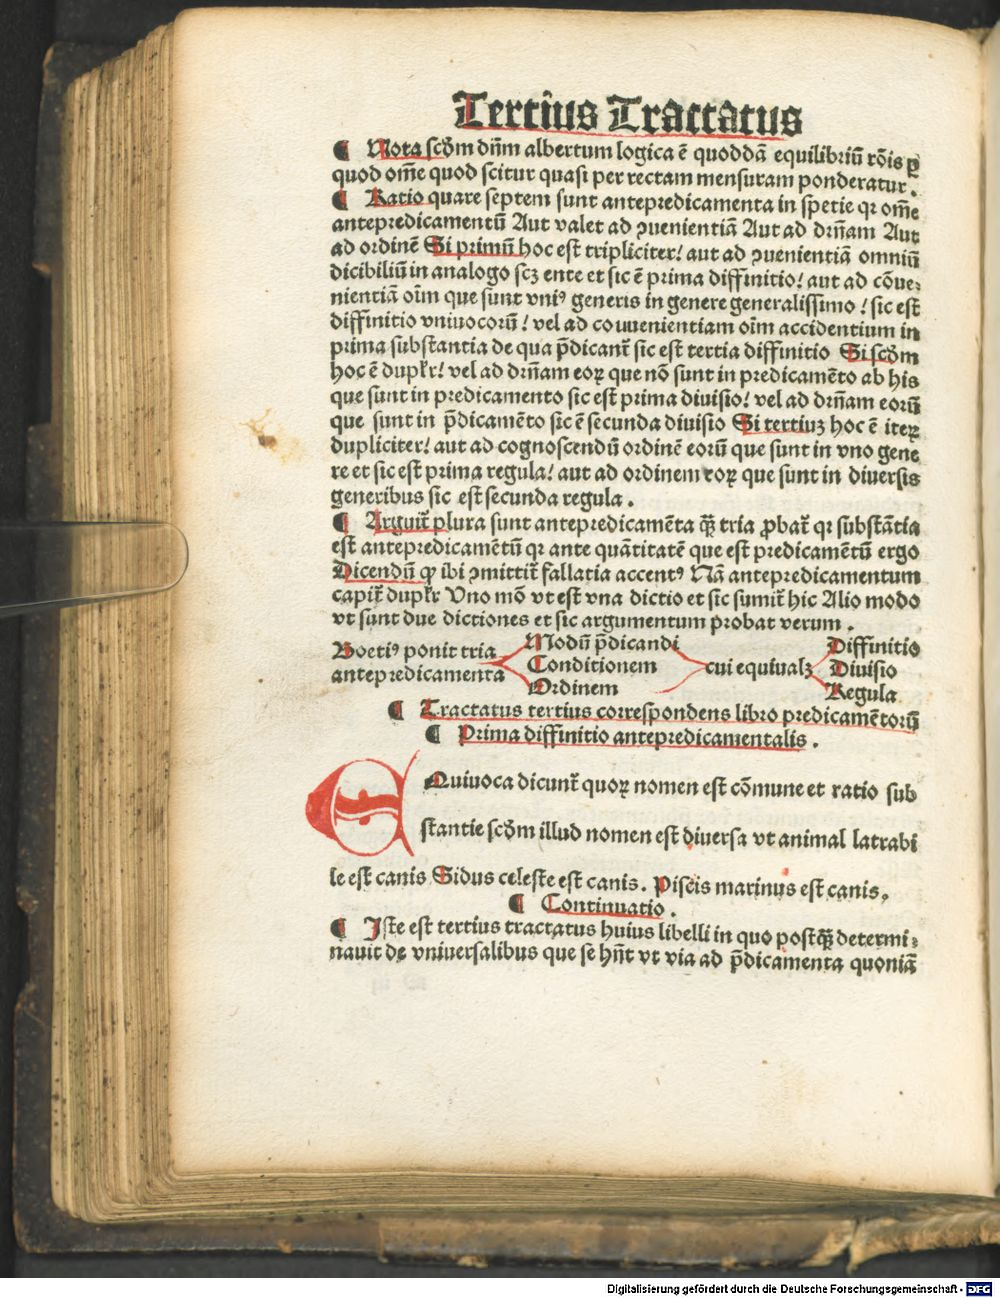 Tertius Tractatus
¶ Nota scđm dn̄m albertum logica ē quoddā equilibriū rōis ꝑ
quod om̄e quod scitur quasi per rectam mensuram ponderatur.
¶ Ratio quare septem sunt antepredicamenta in spetie qꝛ om̄e
antepredicamentū Aut valet ad ꝯuenientiā Aut ad drn̄am Aut
ad ordinē Si primū hoc est tripliciter/ aut ad ꝯuenientiā omniū
dicibiliū in analogo scꝫ ente et sic ē prima diffinitio/ aut ad cōue⸗
nientiā oīm que sunt vniꝰ generis in genere generalissimo / sic est
diffinitio vniuocorū/ vel ad couuenientiam oīm accidentium in
prima substantia de qua p̄dicant᷑ sic est tertia diffinitio Si scđm
hoc ē duplr̄/ vel ad drn̄am eoꝝ que nō sunt in predicamēto ab his
que sunt in predicamento sic est prima diuisio/ vel ad drn̄am eorū
que sunt in p̄dicamēto sic ē secunda diuisio Si tertiuꝫ hoc ē iteꝝ
dupliciter/ aut ad cognoscendū ordinē eorū que sunt in vno gene
re et sic est prima regula/ aut ad ordinem eoꝝ que sunt in diuersis
generibus sic est secunda regula.
¶ Arguit᷑ plura sunt antepredicamēta qȝ̄ tria ꝓbat᷑ qꝛ substātia
est antepredicamētū qꝛ ante quātitatē que est predicamētū ergo
Dicendū ꝙ ibi ꝯmittit᷑ fallatia accentꝰ Nā antepredicamentum
capit᷑ duplr̄ Vno mō vt est vna dictio et sic sumit᷑ hic Alio modo
vt sunt due dictiones et sic argumentum probat verum.
Boetiꝰ ponit tria
antepredicamenta
Modū p̄dicandi
Conditionem
Ordinem
cui equiualꝫ
Diffinitio
Diuisio
Regula
¶ Tractatus tertius correspondens libro predicamētorū
¶ Prima diffinitio antepredicamentalis.
EQuiuoca dicunt᷑ quoꝝ nomen est cōmune et ratio sub
stantie scđm illud nomen est diuersa vt animal latrabi
le est canis Sidus celeste est canis. Piscis marinus est canis.
¶ Continuatio.
¶ Iste est tertius tractatus huius libelli in quo postqȝ̄ determi⸗
nauit de vniuersalibus que se hn̄t vt via ad p̄dicamenta quoniā
Digitalisierung gefördert durch die Deutsche Forschungsgemeinschaft - DFG